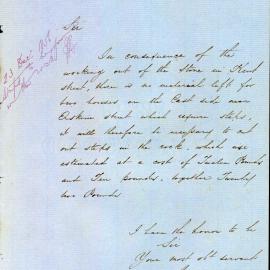 Sir
In consequence of the
working out of the Stone in Kent
street, there is no material left for
two houses on the East side near
Erskine street which require steps,
it will therefore be necessary to cut
out steps in the rock, which are
estimated at a cost of Twelve Pounds
and Ten Pounds, together Twenty
two Pounds
I have the honor to be
Sir
Your most obt servant